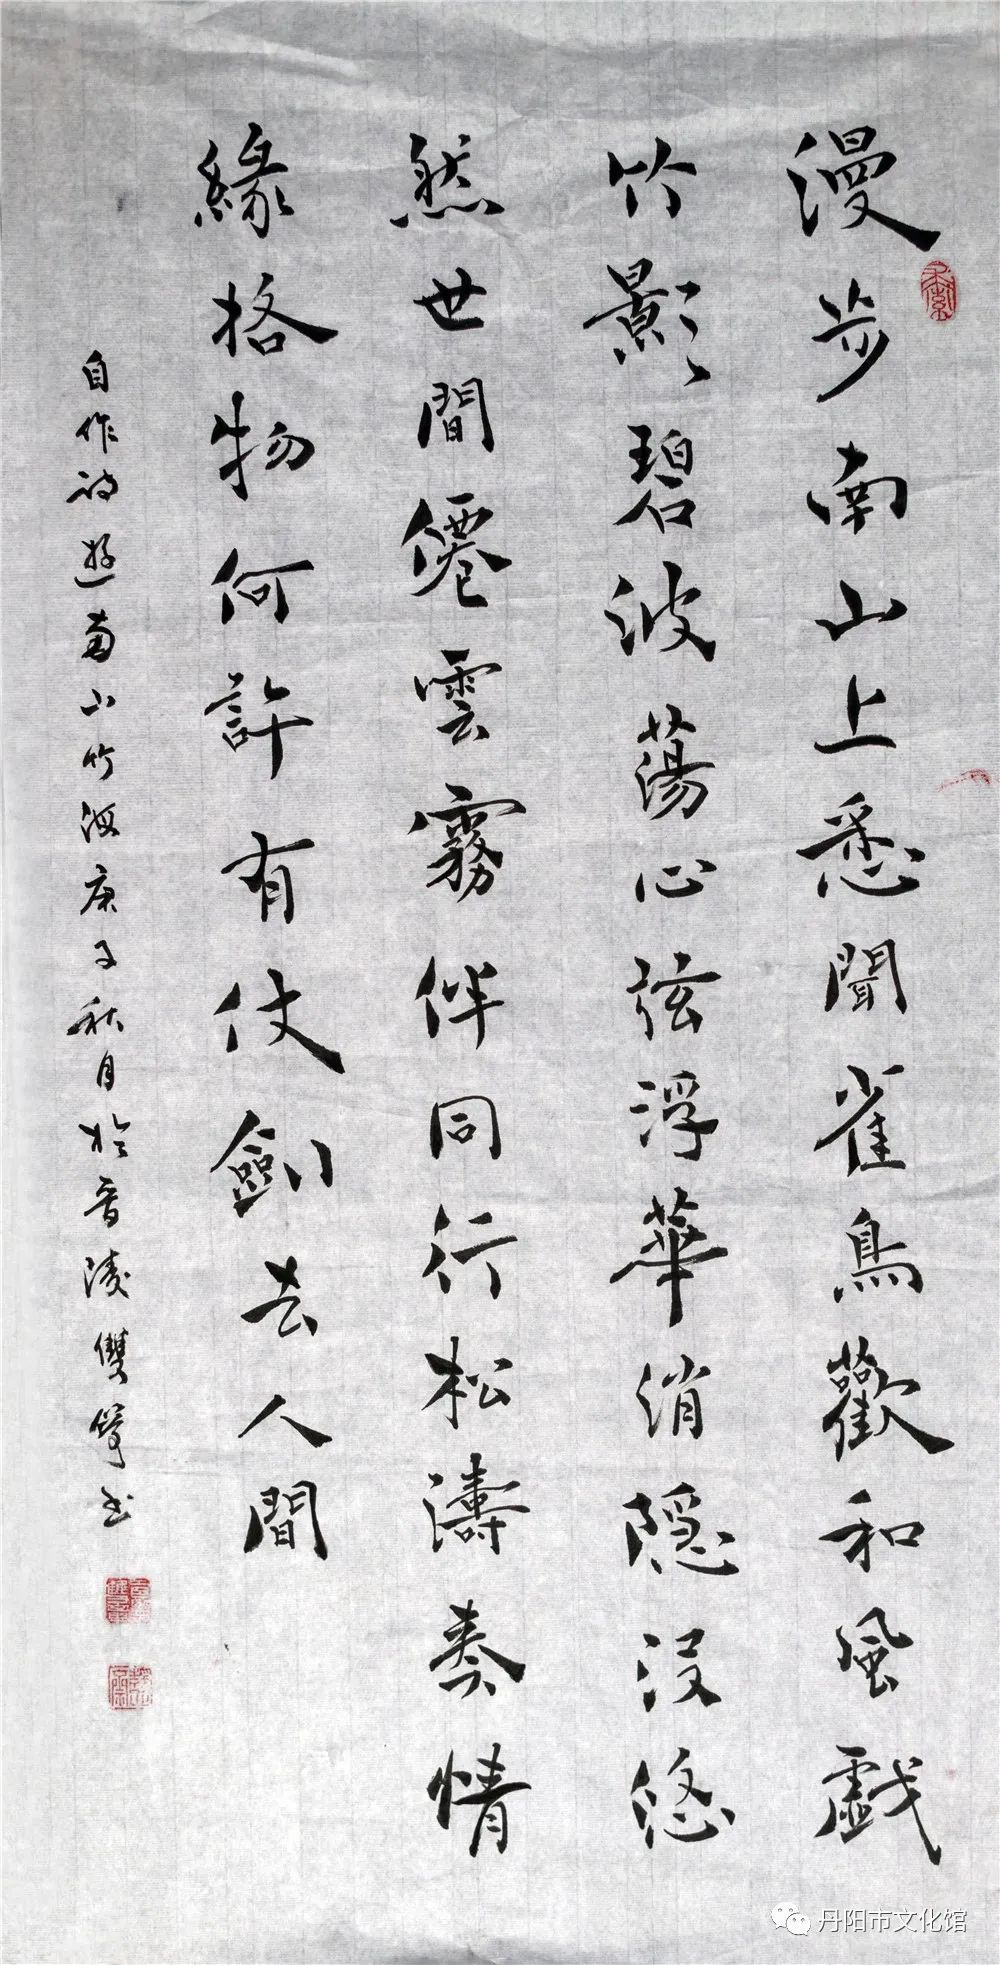 漫步南山上悉聞雀鳥歡和風戲
竹影碧波蕩心弦浮華消隱没悠
然世間僊雲霧伴同行松濤奏情
緣格物何許有仗劍去人間
自作詩遊南山竹海庚子秋月於晋陵雙筆书
丹阳市文化馆